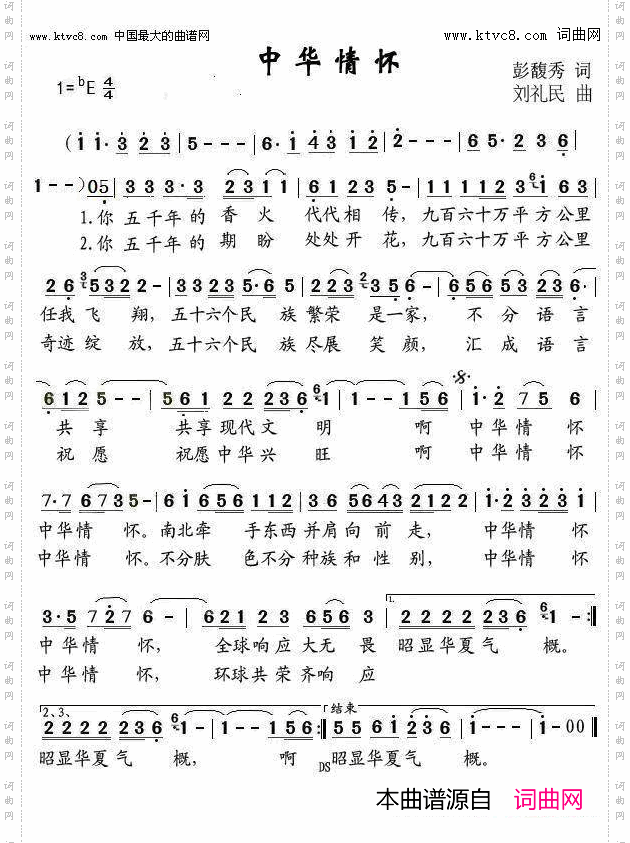 www.ktvc8.com 中国最大的曲谱网
www.ktvc8.com 词曲网
中华情怀
彭馥秀 词
刘礼民 曲
1=ᵇE 4/4
(1 1· 3 2 3 | 5 - - - | 6· 1 4 3 1 2 | 2 - - - | 6 5· 2 3 6 |
1 - - ) 0 5 | 3 3 3· 3 2 3 1 1 | 6 1 2 3 5 - | 1 1 1 1 1 2 3 6 1 6 3 |
1.你 五千年的 香火 代代相传, 九百六十万平方公里
2.你 五千年的 期盼 处处开花, 九百六十万平方公里
2 6 3 5 3 2 2 - | 3 3 2 3 5· 6 5 | 2 2 3 2 3 5 6 - | 6 5 6 5 3 2 3 6· |
任我飞翔, 五十六个民族繁荣是一家, 不分语言
奇迹绽放, 五十六个民族尽展笑颜, 汇成语言
6 1 2 5 - - | 5 6 1 2 2 2 3 6 6 1 | 1 - - 1 5 6 | 1· 2 7 5 6 |
共享 共享现代文明 啊 中华情怀
祝愿 祝愿中华兴旺 啊 中华情怀
7· 7 6 7 3 5 - | 6 1 6 5 6 1 1 2 | 3 6 5 6 4 3 2 1 2 2 | 1· 2 3 2 3 1 |
中华情怀。南北牵手东西并肩向前走, 中华情怀
中华情怀。不分肤色不分种族和性别, 中华情怀
3· 5 7 2 7 6 - | 6 2 1 2 3 | 6 5 6 3 | 1. 2 2 2 2 2 3 6 6 1 - :‖
中华情怀, 全球响应大无畏 昭显华夏气概。
中华情怀, 环球共荣齐响应
2、3、 2 2 2 2 2 3 6 6 1 - | 1 - - 1 5 6 :‖ 结束 5 5 6 1 2 3 6 | 1 - - - | 1 - 0 0 ‖
昭显华夏气概, 啊 DS 昭显华夏气概。
本曲谱源自 词曲网